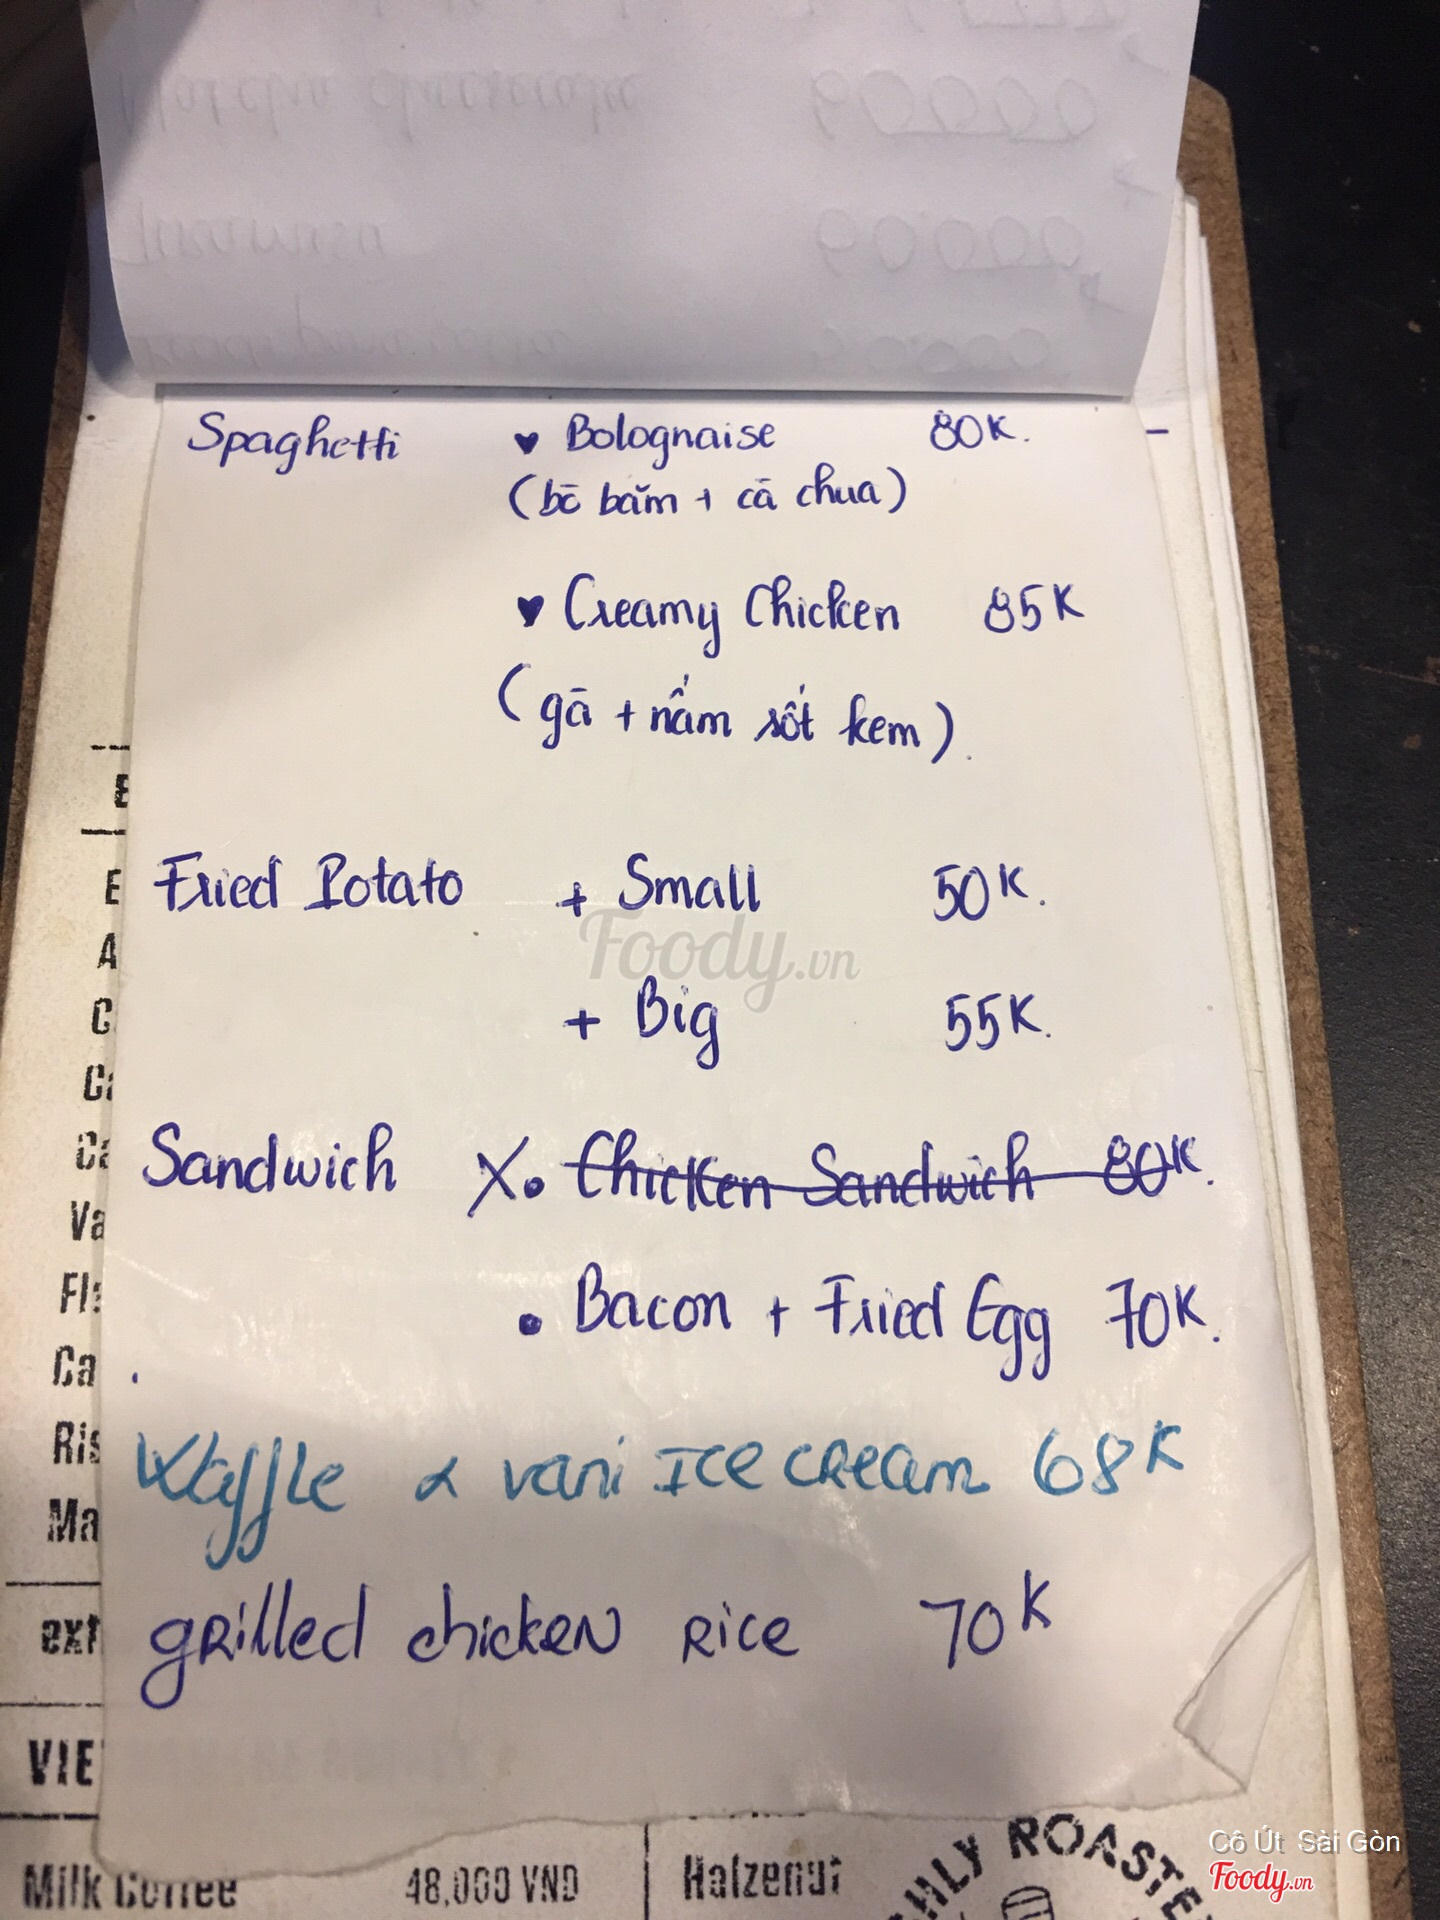 Spaghetti ♥ Bolognaise 80K.
(bò băm + cà chua)
♥ Creamy Chicken 85K
(gà + nấm sốt kem).
Fried Potato + Small 50K.
Foody.vn
+ Big 55K.
Sandwich X • Chicken Sandwich 80K.
• Bacon + Fried Egg 70K.
Waffle & vani ICE CREAM 68K
gRilled chickeN Rice 70K
VIE
Milk Coffee 48,000 VND Halzenut
HLY ROASTE
Cô Út Sài Gòn
Foody.vn